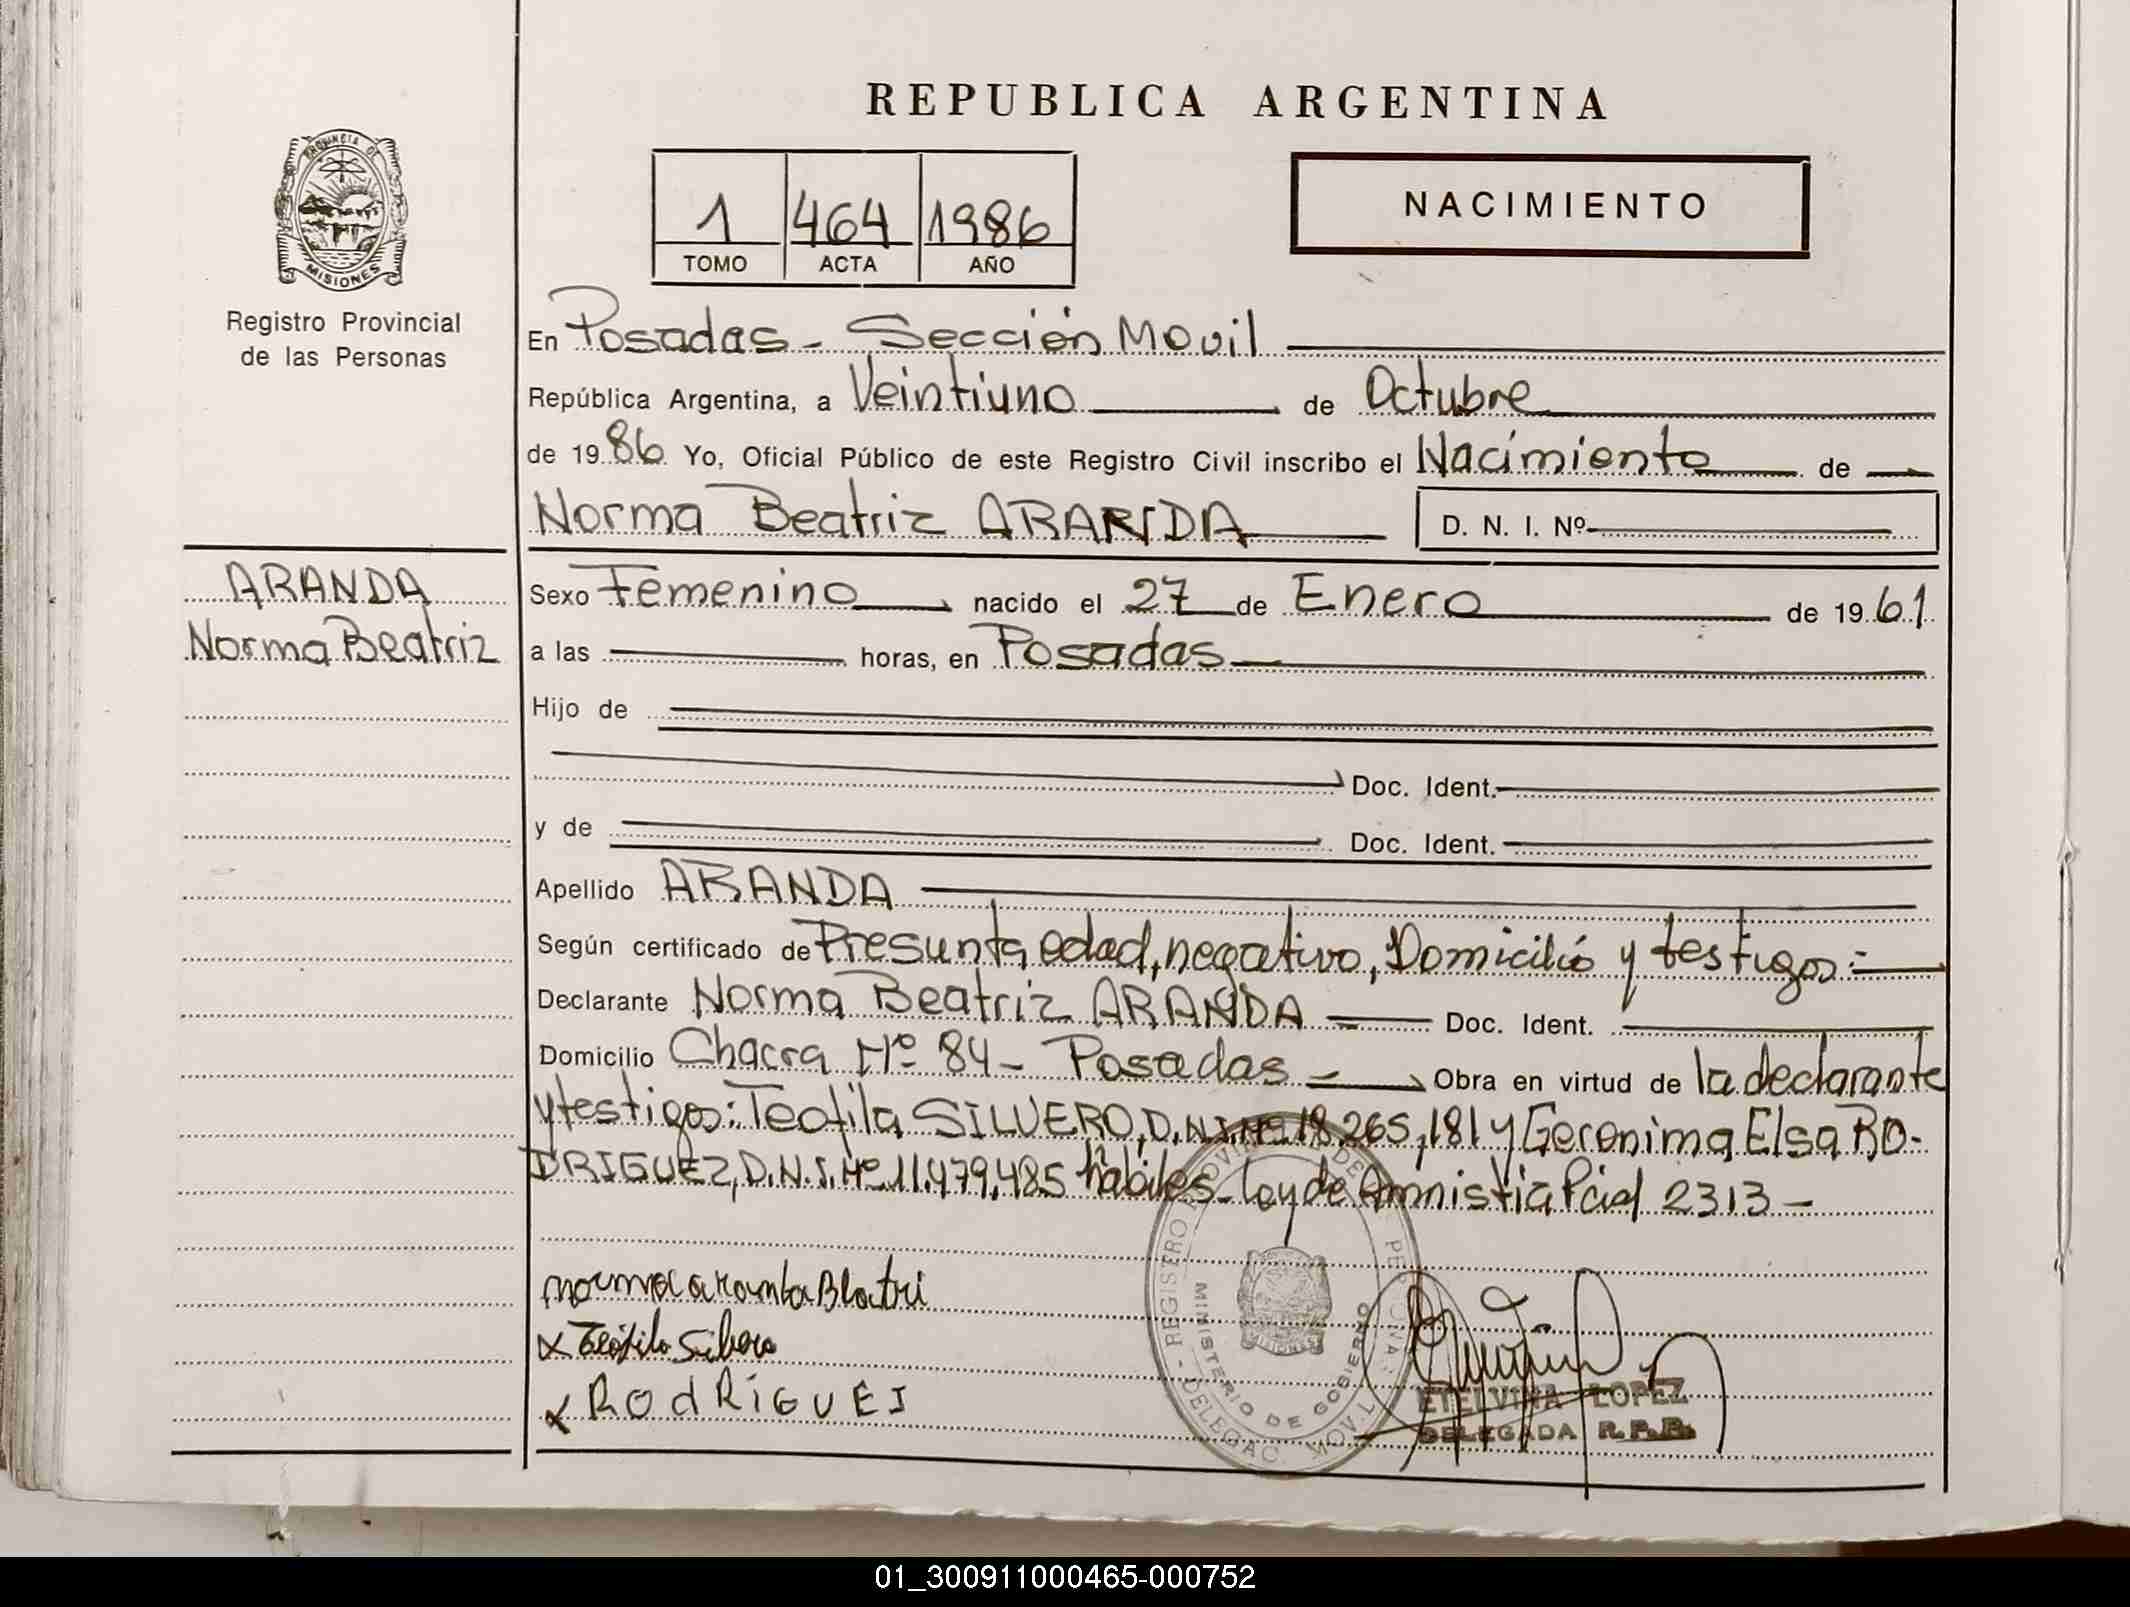 REPUBLICA ARGENTINA
PROVINCIA DE
MISIONES
Registro Provincial
de las Personas
1 464 1986
TOMO ACTA AÑO
NACIMIENTO
En Posadas - Sección Movil
República Argentina, a Veintiuno de Octubre
de 1986 Yo, Oficial Público de este Registro Civil inscribo el Nacimiento de
Norma Beatriz ARANDA D. N. I. Nº
ARANDA
Norma Beatriz
Sexo Femenino nacido el 27 de Enero de 1961
a las horas, en Posadas
Hijo de
Doc. Ident.
y de Doc. Ident.
Apellido ARANDA
Según certificado de Presunta edad, negativo, Domicilio y testigos:
Declarante Norma Beatriz ARANDA Doc. Ident.
Domicilio Chacra Nº 84 - Posadas - Obra en virtud de la declarante
y testigos: Teofila SILVERO, D.N.I. Nº 18.265,181 y Geronima Elsa RO-
DRIGUEZ, D.N.I. Nº 11.479.485 habiles - Ley de Amnistia Pcial 2313 -
norma aramba Blatri
x Teofila Silvero
x RodRIGUEZ
MINISTERIO DE GOBIERNO
ETELVINA LOPEZ
DELEGADA R.P.P.
01_300911000465-000752